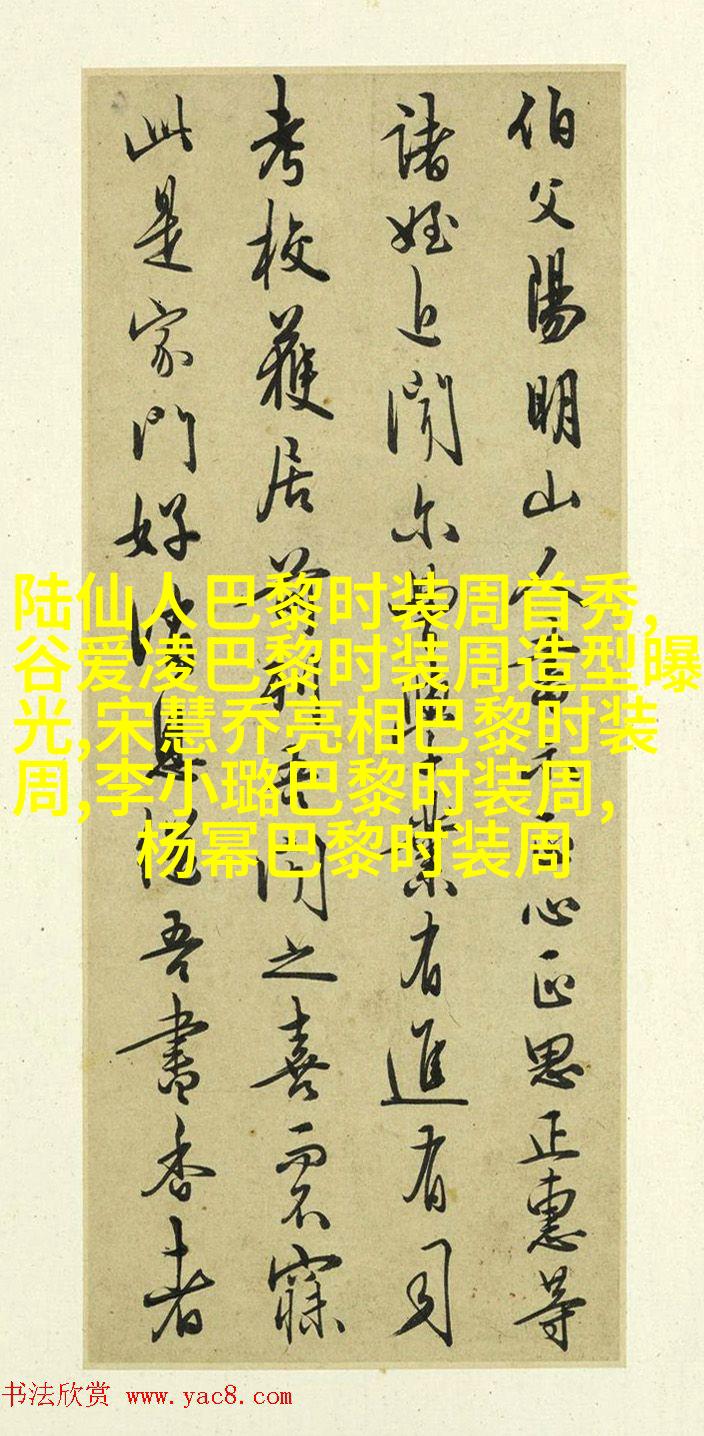 伯父陽明山人書示正心正思正惠等
諸姪近聞尔曹學業有進有司
考校獲居前列吾聞之喜而不寐
此是家門好消息繼吾書香者
陆仙人巴黎时装周首秀,
谷爱凌巴黎时装周造型曝
光,宋慧乔亮相巴黎时装
周,李小璐巴黎时装周,
杨幂巴黎时装周
书法欣赏 www.yac8.com